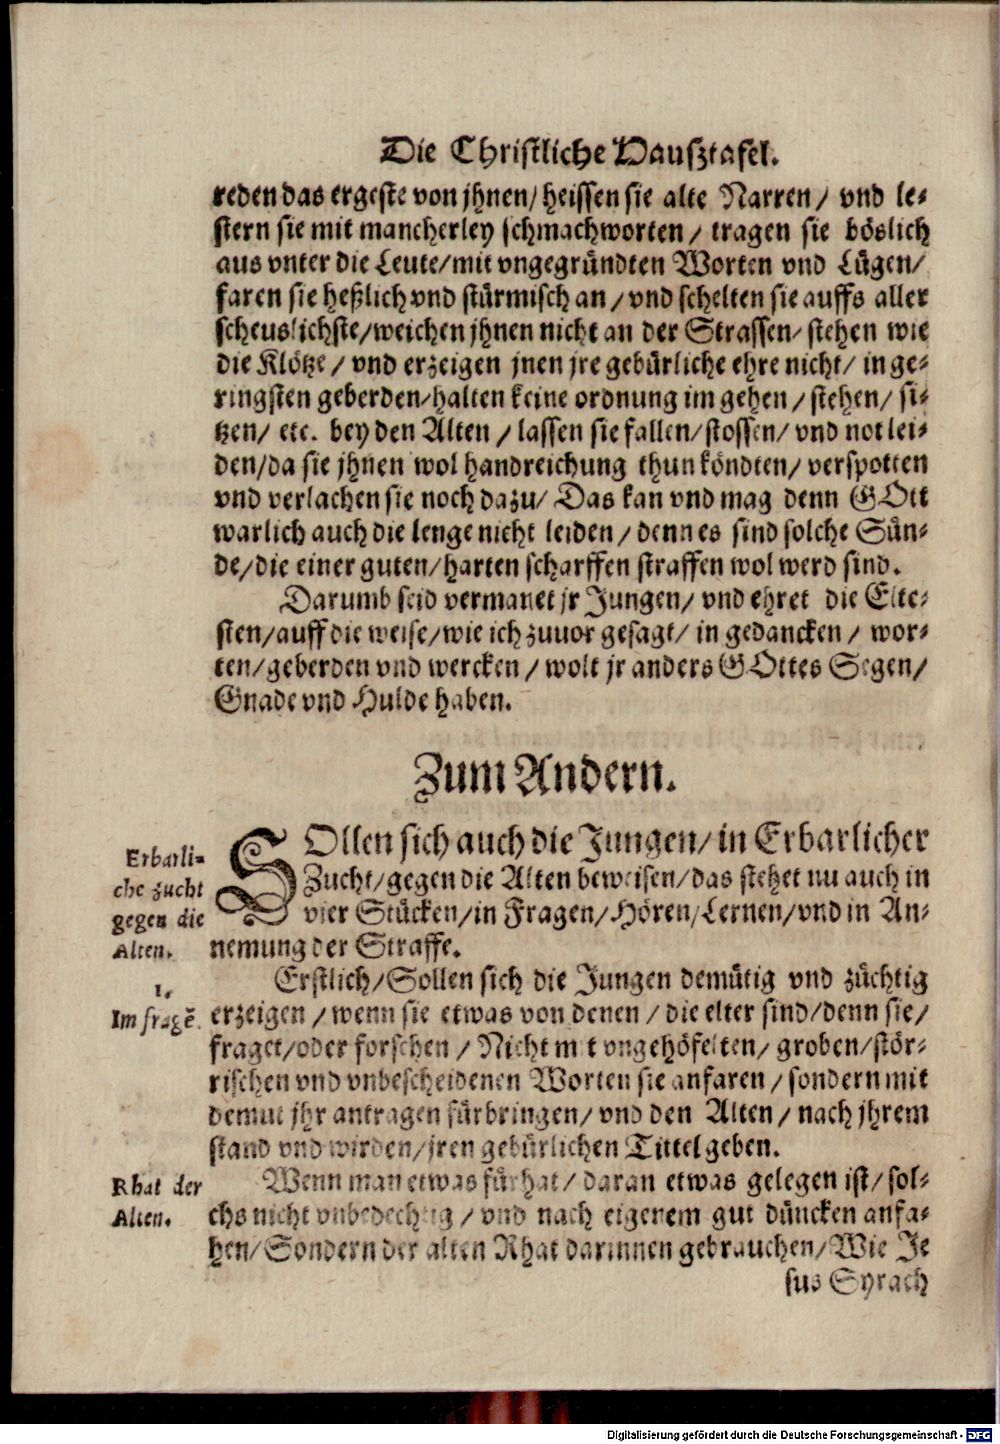 Die Christliche Hauſztafel.
reden das ergeſte von jhnen/ heiſſen ſie alte Narren/ vnd le-
ſtern ſie mit mancherley ſchmachworten/ tragen ſie böslich
aus vnter die Leute/ mit vngegründten Worten vnd Lügen/
faren ſie heßlich vnd ſtürmiſch an/ vnd ſchelten ſie auffs aller
ſcheuslichſte/ weichen jhnen nicht an der Straſſen/ ſtehen wie
die Klötze/ vnd erzeigen jnen jre gebürliche ehre nicht/ in ge-
ringſten geberden/ halten keine ordnung im gehen/ ſtehen/ ſi-
tzen/ etc. bey den Alten/ laſſen ſie fallen/ ſtoſſen/ vnd not lei-
den/ da ſie jhnen wol handreichung thun köndten/ verſpotten
vnd verlachen ſie noch dazu/ Das kan vnd mag denn GOtt
warlich auch die lenge nicht leiden/ denn es ſind ſolche Sün-
de/ die einer guten/ harten ſcharffen ſtraffen wol werd ſind.
Darumb ſeid vermanet jr Jungen/ vnd ehret die Elte-
ſten/ auff die weiſe/ wie ich zuuor geſagt/ in gedancken/ wor-
ten/ geberden vnd wercken/ wolt jr anders GOttes Segen/
Gnade vnd Hulde haben.
Zum Andern.
Erbarli-
che zucht
gegen die
Alten.
SOllen ſich auch die Jungen/ in Erbarlicher
Zucht/ gegen die Alten beweiſen/ das ſtehet nu auch in
vier Stücken/ in Fragen/ Hören/ Lernen/ vnd in An-
nemung der Straffe.
1.
Im fragē.
Erſtlich/ Sollen ſich die Jungen demütig vnd züchtig
erzeigen/ wenn ſie etwas von denen/ die elter ſind/ denn ſie/
fraget/ oder forſchen/ Nicht mit vngehöfelten/ groben/ ſtör-
riſchen vnd vnbeſcheidenen Worten ſie anfaren/ ſondern mit
demut jhr antragen fürbringen/ vnd den Alten/ nach jhrem
ſtand vnd wirden/ jren gebürlichen Tittel geben.
Rhat der
Alten.
Wenn man etwas für hat/ daran etwas gelegen iſt/ ſol-
chs nicht vnbedechtig/ vnd nach eigenem gut düncken anfa-
hen/ Sondern der alten Rhat darinnen gebrauchen/ Wie Je
ſus Syrach
Digitalisierung gefördert durch die Deutsche Forschungsgemeinschaft - DFG